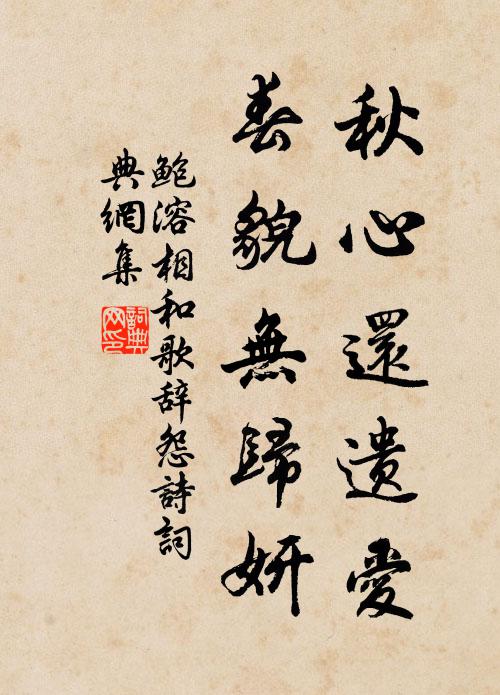 秋心還遺愛
春貌無歸妍
鲍溶相和歌辞怨詩詞
典網集
詞典网印